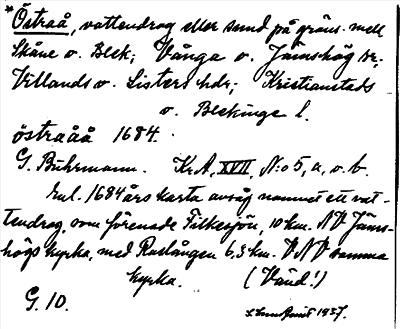 * Östraå, vattendrag eller sund på gräns. mell
Skåne o. Blek; Vånga o. Jämshög sr.
Villands o. Listers hdr; Kristianstads
o. Blekinge l.
östraåå 1684.
G. Buhrmann. Kr.A, XVII, N:o 5, a, o. b.
Enl. 1684 års karta avsåg namnet ett vat-
tendrag, som förenade Filkesjön, 10 km. NV Jäms-
högs kyrka, med Raslången 6,3 km. VNV samma
kyrka. (Vänd!)
G. 10.
1937.